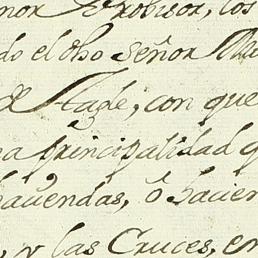 nor Probisor, los
do el dho señor
de Tagle, con que
a principalidad q
hauiendas, ô hacien
, y las Cruces, en